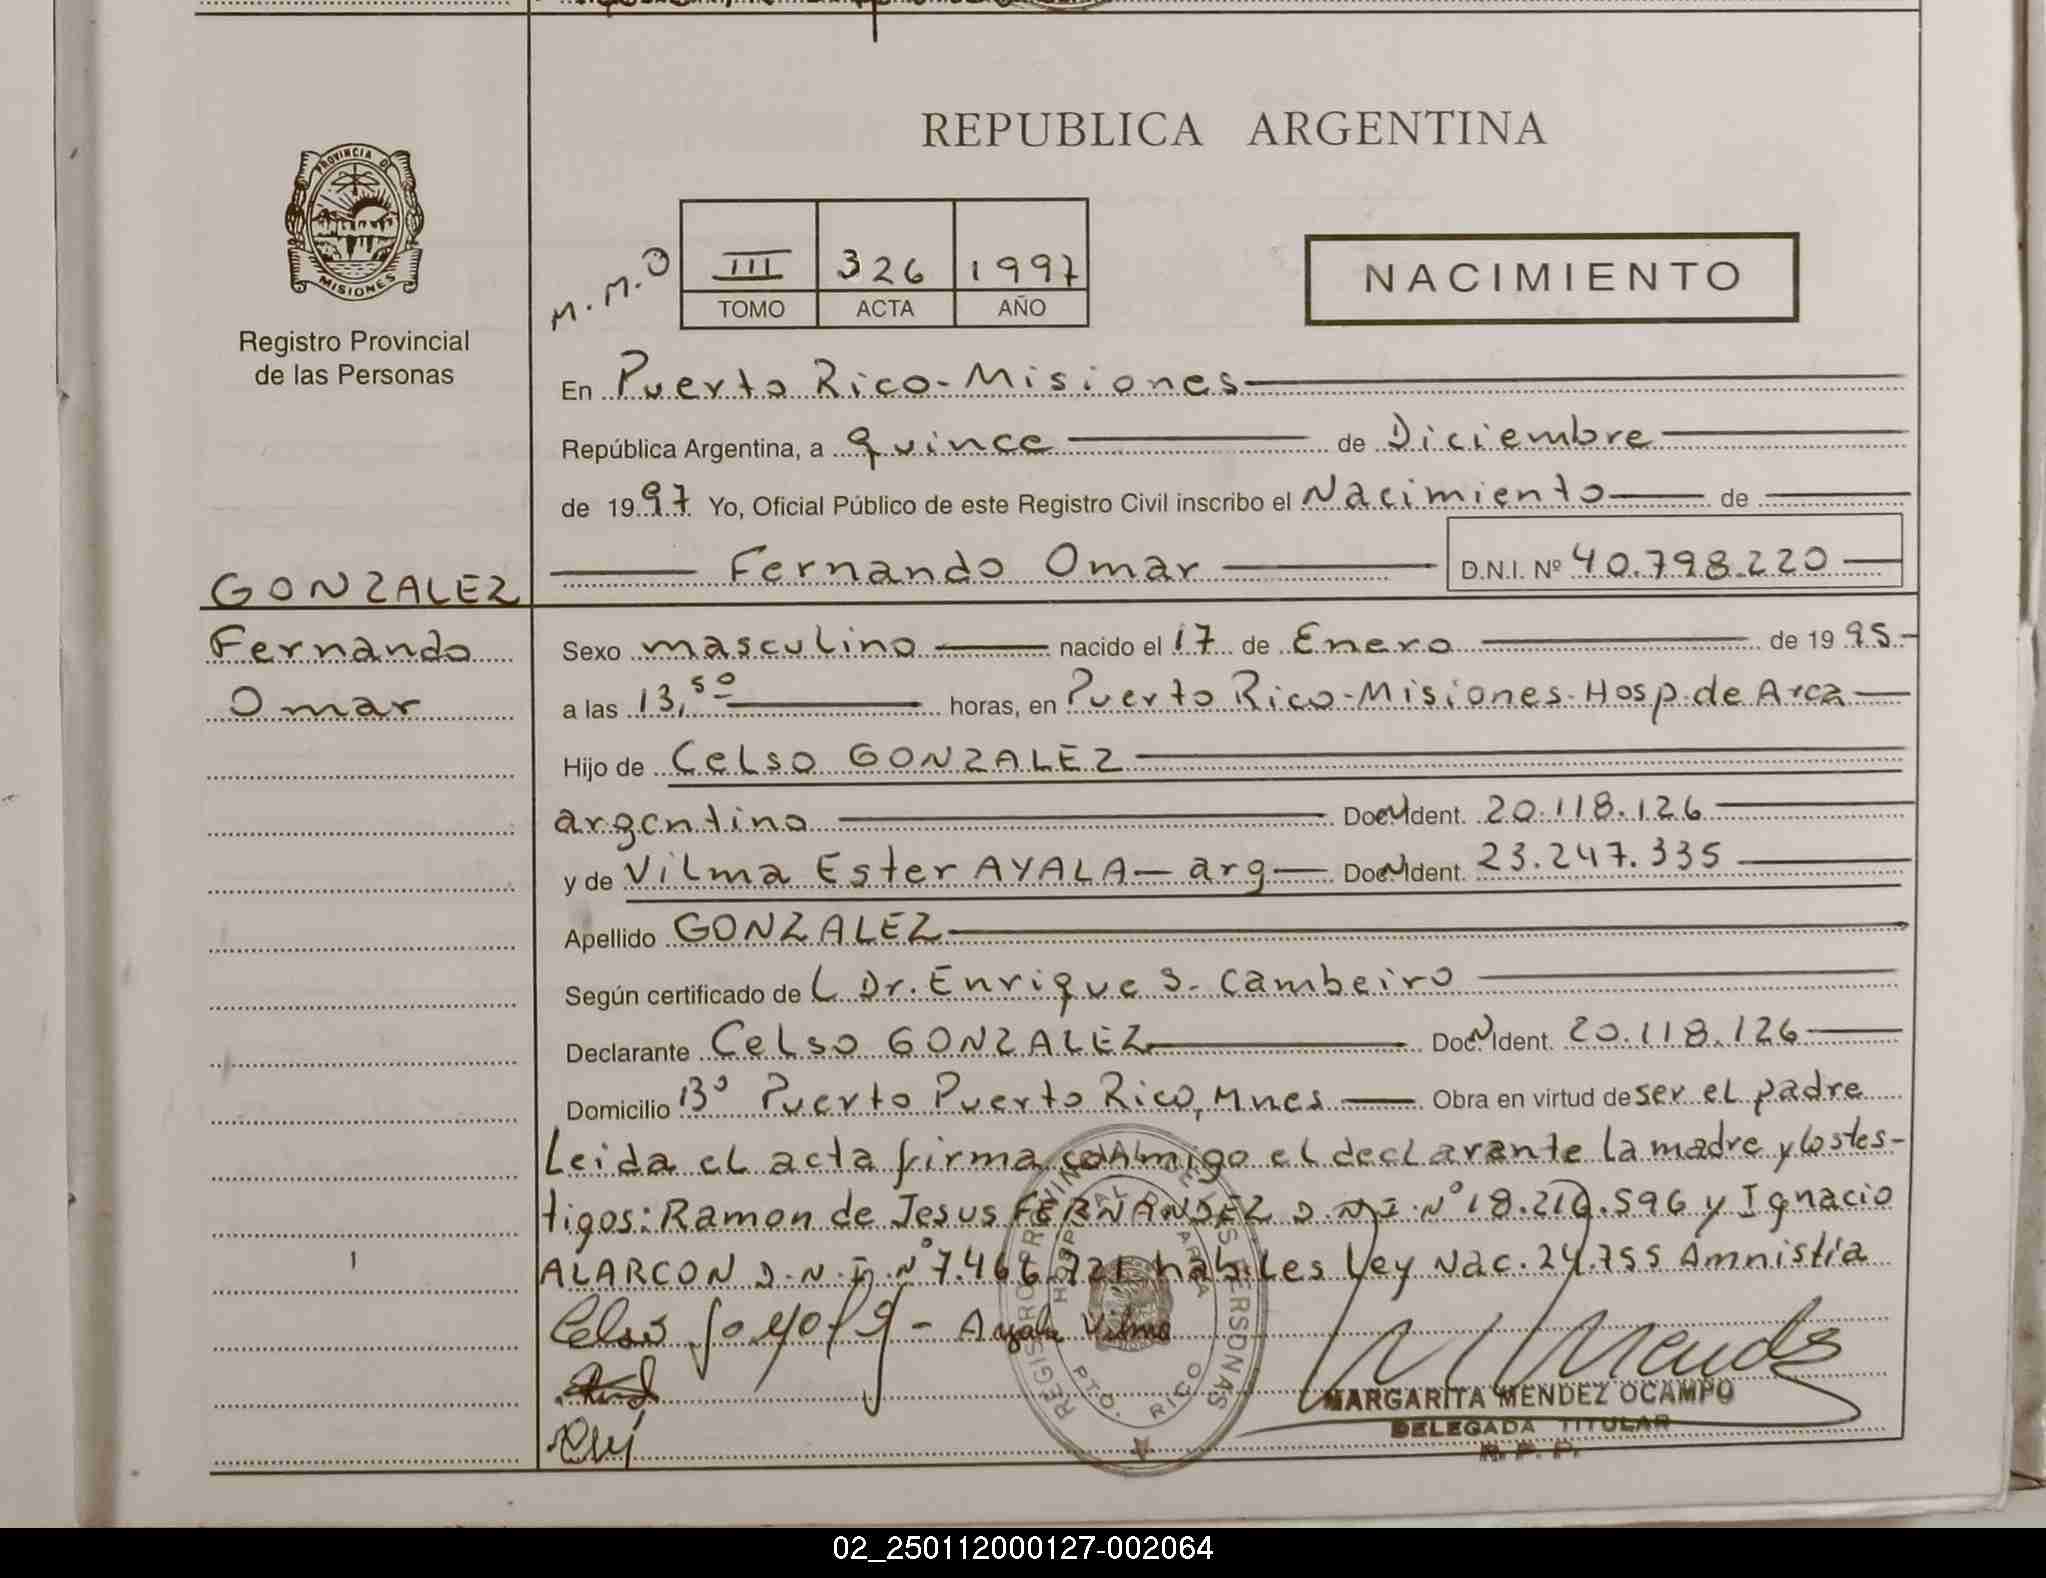 REPUBLICA ARGENTINA
PROVINCIA D
MISIONES
Registro Provincial
de las Personas
M.M.O
III 326 1997
TOMO ACTA AÑO
NACIMIENTO
En Puerto Rico-Misiones
República Argentina, a quince de Diciembre
de 1997 Yo, Oficial Público de este Registro Civil inscribo el Nacimiento de
Fernando Omar D.N.I. Nº 40.798.220
GONZALEZ
Fernando
Omar
Sexo masculino nacido el 17 de Enero de 1995
a las 13,50 horas, en Puerto Rico-Misiones-Hosp.de Area
Hijo de Celso GONZALEZ
argentino Doc. Ident. 20.118.126
y de Vilma Ester AYALA-arg- Doc. Ident. 23.247.335
Apellido GONZALEZ
Según certificado de L Dr. Enrique S. Cambeiro
Declarante Celso GONZALEZ Doc. Ident. 20.118.126
Domicilio Bº Puerto Puerto Rico, Mnes Obra en virtud de ser el padre
Leida el acta firma conmigo el declarante la madre y los tes-
tigos: Ramon de Jesus FERNANDEZ D.N.I. Nº 18.216.596 y Ignacio
ALARCON D.N.I. Nº 7.466.721 habiles Ley Nac. 24.755 Amnistia
Celso - Ayala Vilma
REGISTRO PROVINCIAL DE LAS PERSONAS
HOSPITAL DE AREA
PTO. RICO
M Mendez
MARGARITA MENDEZ OCAMPO
DELEGADA TITULAR
R.P.P.
02_250112000127-002064